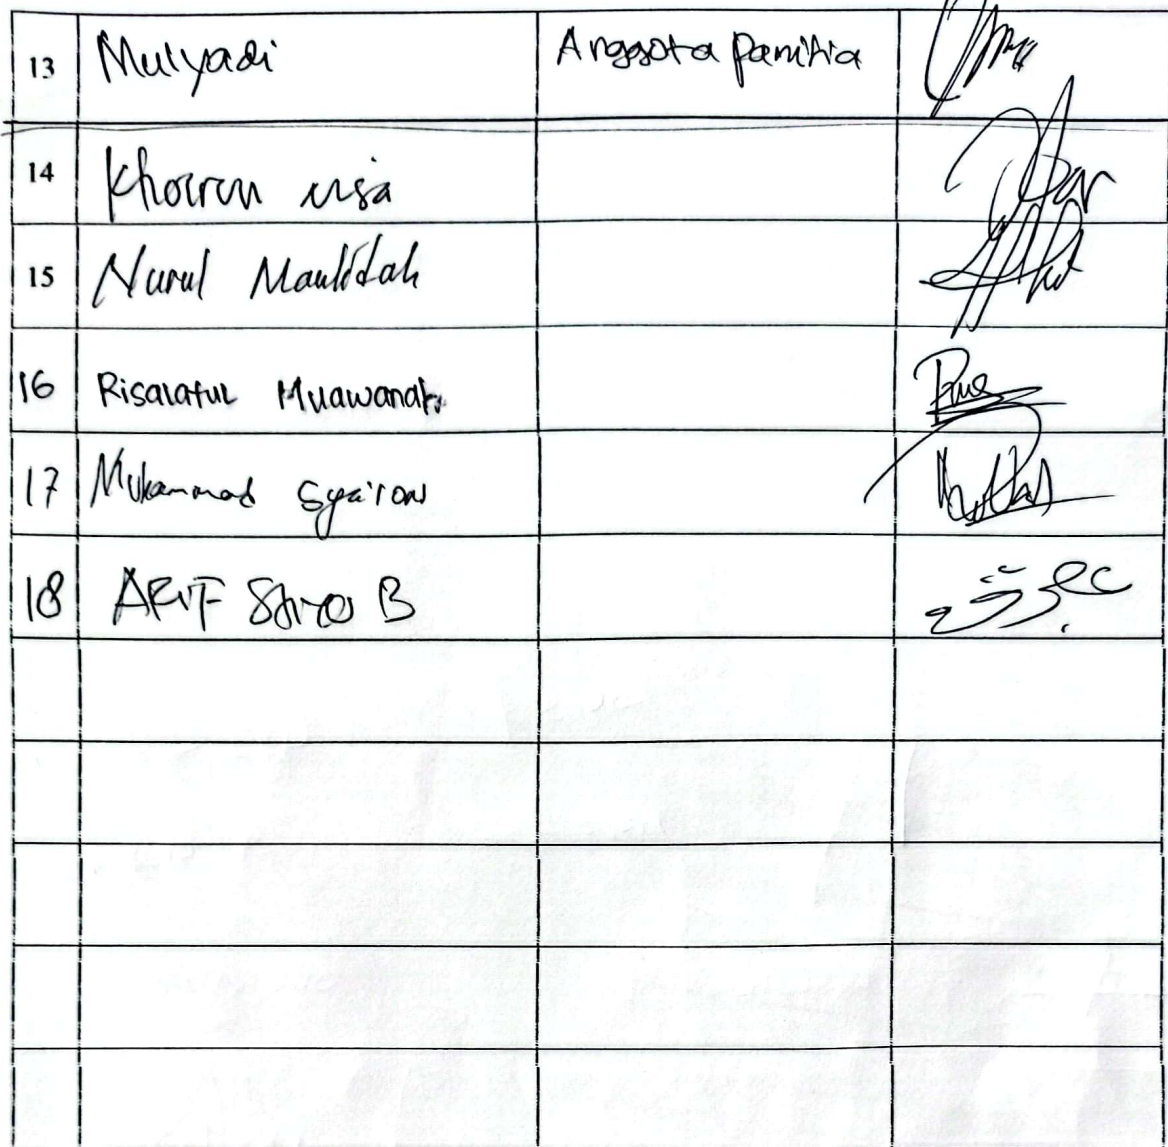 13 Mulyadi Anggota Panitia
14 Khoirun nisa
15 Nurul Maulidah
16 Risalatul Muawanah
17 Muhammad Syairozi
18 ARIF B